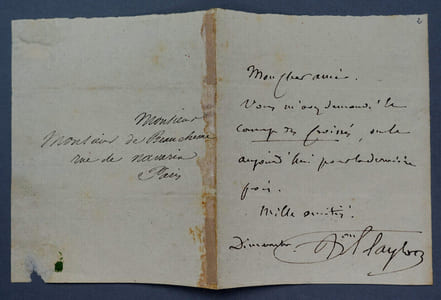 Monsieur
Monsieur de Beauchesne
rue de navarin
Paris
2
Mon cher ami.
Vous m'avez demandé le
camp des Croisés, on le
aujourd'hui pour la dernière
fois.
Mille amitiés.
Dimanche Bon I Taylor